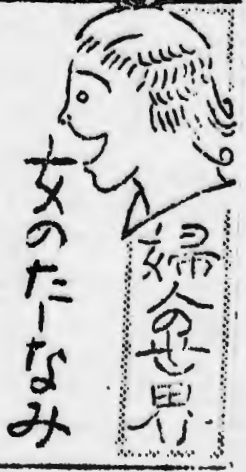 婦人の世界
女のたしなみ